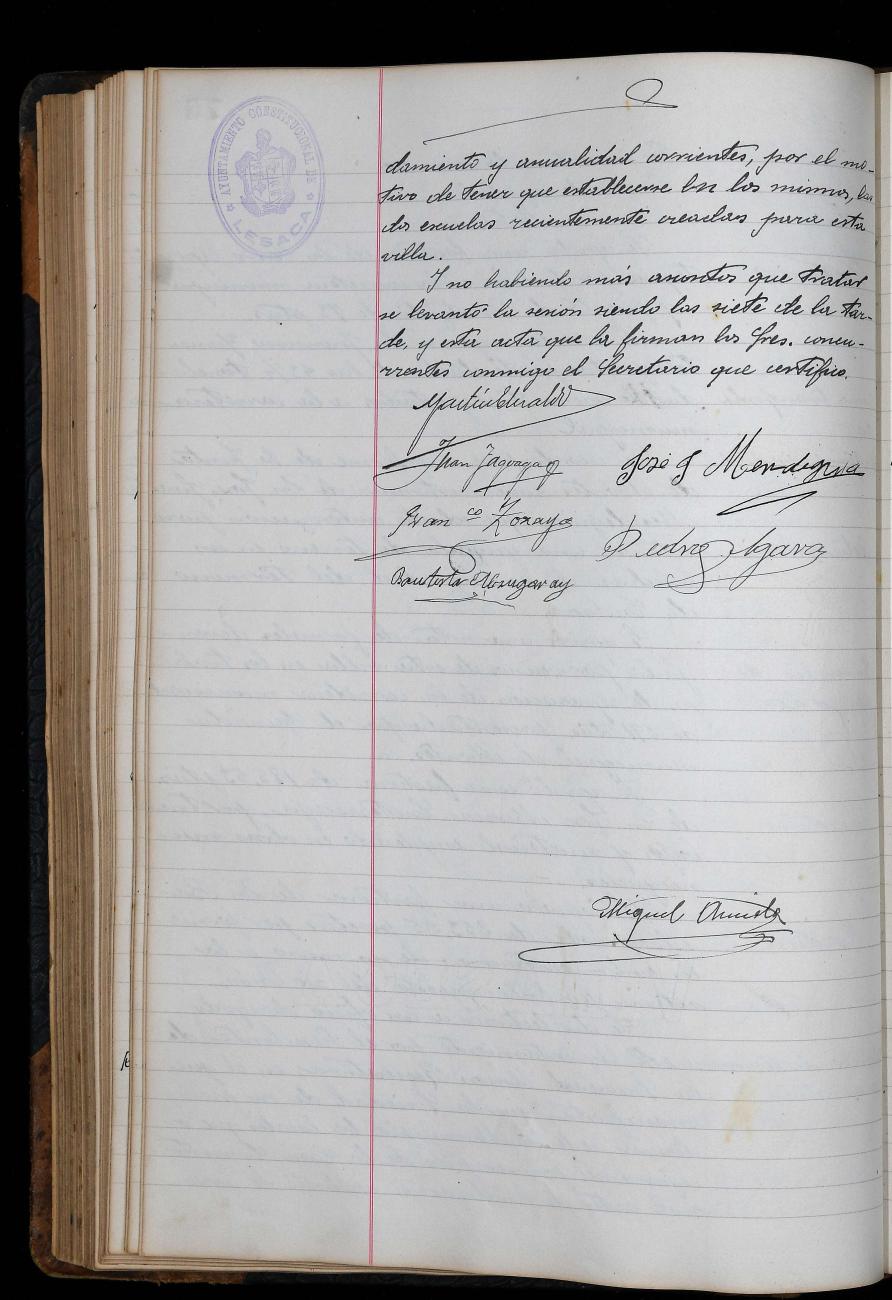 AYUNTAMIENTO CONSTITUCIONAL DE
LESACA
damiento y anualidad corrientes, por el mo-
tivo de tener que establecerse en los mismos, las
dos escuelas recientemente creadas para esta
villa.
Y no habiendo más asuntos que tratar
se levantó la sesión siendo las siete de la tar-
de, y esta acta que la firman los Sres. concu-
rrentes conmigo el Secretario que certifico.
Martín Elizalde
Juan
José J Mendiguia
Fran co Zozaya
Pedro Igara
Bautista
Miguel